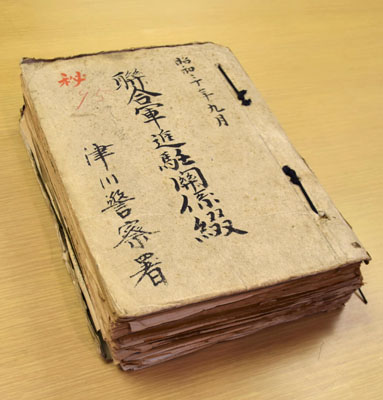 昭和二十年九月
聯合軍進駐關係綴
津川警察署
秘